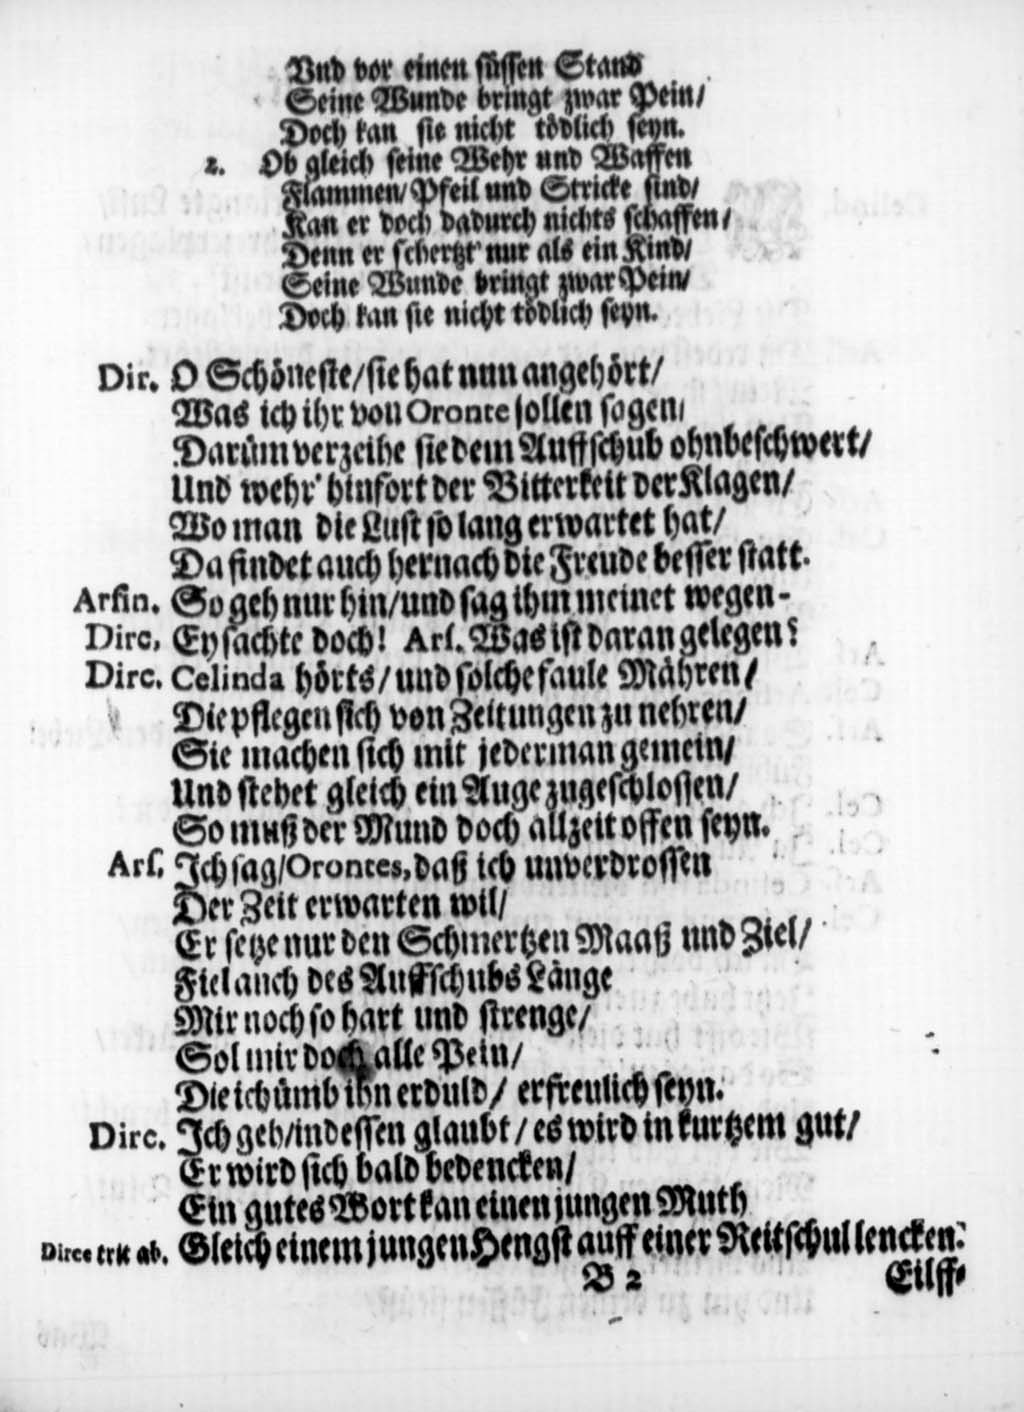 Vnd vor einen süssen Stand
Seine Wunde bringt zwar Pein/
Doch kan sie nicht tödlich seyn.
2. Ob gleich seine Wehr und Waffen
Flammen/ Pfeil und Stricke sind/
Kan er doch dadurch nichts schaffen/
Denn er schertzt nur als ein Kind/
Seine Wunde bringt zwar Pein/
Doch kan sie nicht tödlich seyn.
Dir. O Schöneste/ sie hat nun angehört/
Was ich ihr von Oronte sollen sagen/
Darüm verzeihe sie dem Auffschub ohnbeschwert/
Und wehr' hinfort der Bitterkeit der Klagen/
Wo man die Lust so lang erwartet hat/
Da findet auch hernach die Freude besser statt.
Arsin. So geh nur hin/ und sag ihm meinet wegen-
Dirc. Ey sachte doch! Ars. Was ist daran gelegen?
Dirc. Celinda hörts/ und solche faule Mähren/
Die pflegen sich von Zeitungen zu nehren/
Sie machen sich mit jederman gemein/
Und stehet gleich ein Auge zugeschlossen/
So muß der Mund doch allzeit offen seyn.
Ars. Ich sag/ Orontes, daß ich unverdrossen
Der Zeit erwarten wil/
Er setze nur den Schmertzen Maaß und Ziel/
Fiel auch des Auffschubs Länge
Mir noch so hart und strenge/
Sol mir doch alle Pein/
Die ich ümb ihn erduld/ erfreulich seyn.
Dirc. Ich geh/ indessen glaubt/ es wird in kurtzem gut/
Er wird sich bald bedencken/
Ein gutes Wort kan einen jungen Muth
Dirce trit ab. Gleich einem jungen Hengst auff einer Reitschul lencken.
B 2 Eilff-